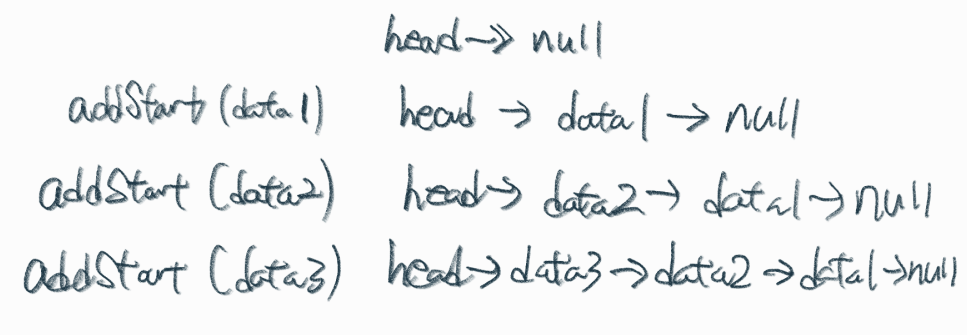 head → null
addStart (data1) head → data1 → null
addStart (data2) head → data2 → data1 → null
addStart (data3) head → data3 → data2 → data1 → null